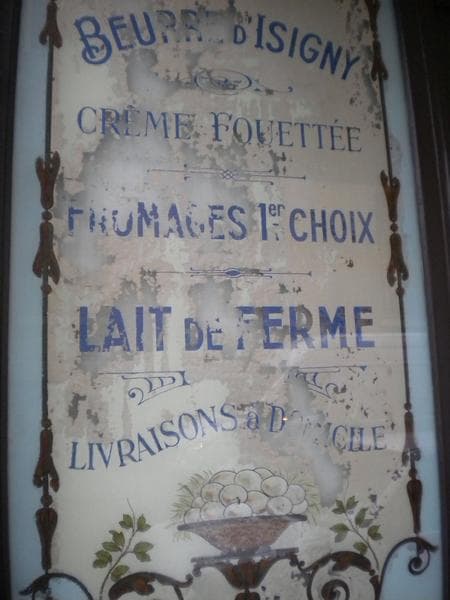 BEURRE D'ISIGNY
CRÈME FOUETTÉE
FROMAGES 1er CHOIX
LAIT DE FERME
LIVRAISONS à DOMICILE